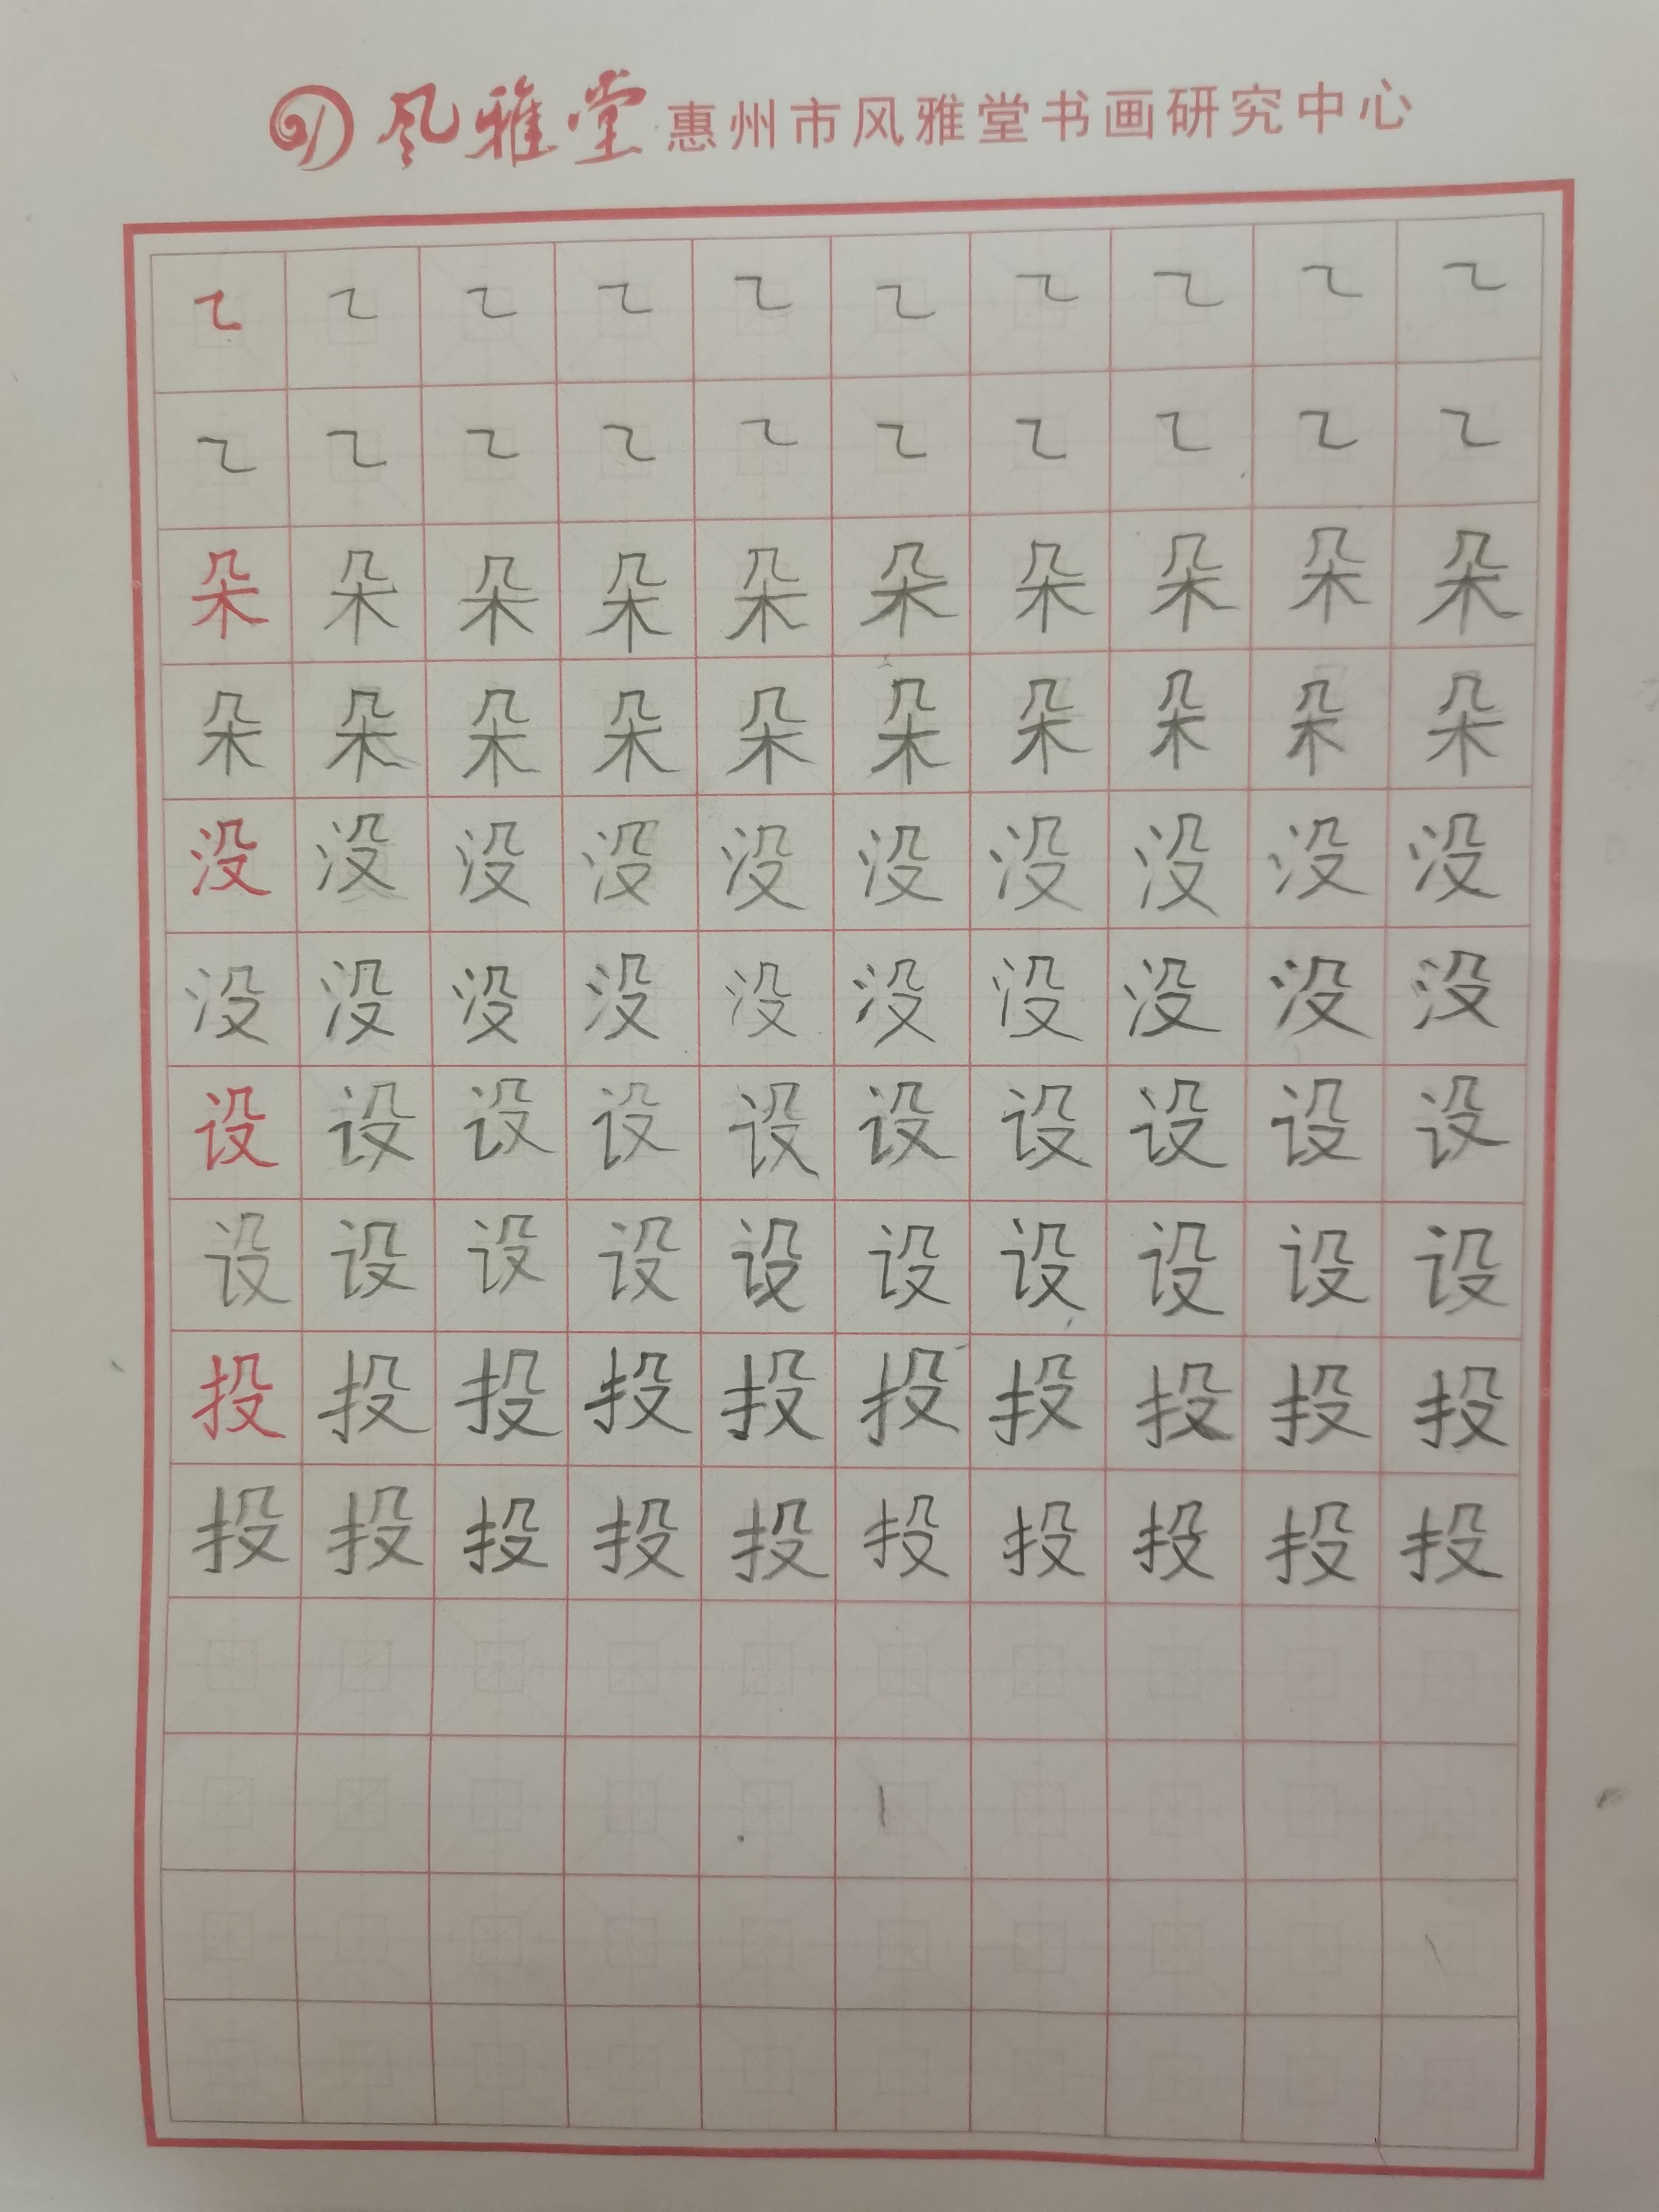 风雅堂 惠州市风雅堂书画研究中心
㇍ ㇍ ㇍ ㇍ ㇍ ㇍ ㇍ ㇍ ㇍ ㇍
㇍ ㇍ ㇍ ㇍ ㇍ ㇍ ㇍ ㇍ ㇍ ㇍
朵 朵 朵 朵 朵 朵 朵 朵 朵 朵
朵 朵 朵 朵 朵 朵 朵 朵 朵 朵
没 没 没 没 没 没 没 没 没 没
没 没 没 没 没 没 没 没 没 没
设 设 设 设 设 设 设 设 设 设
设 设 设 设 设 设 设 设 设 设
投 投 投 投 投 投 投 投 投 投
投 投 投 投 投 投 投 投 投 投